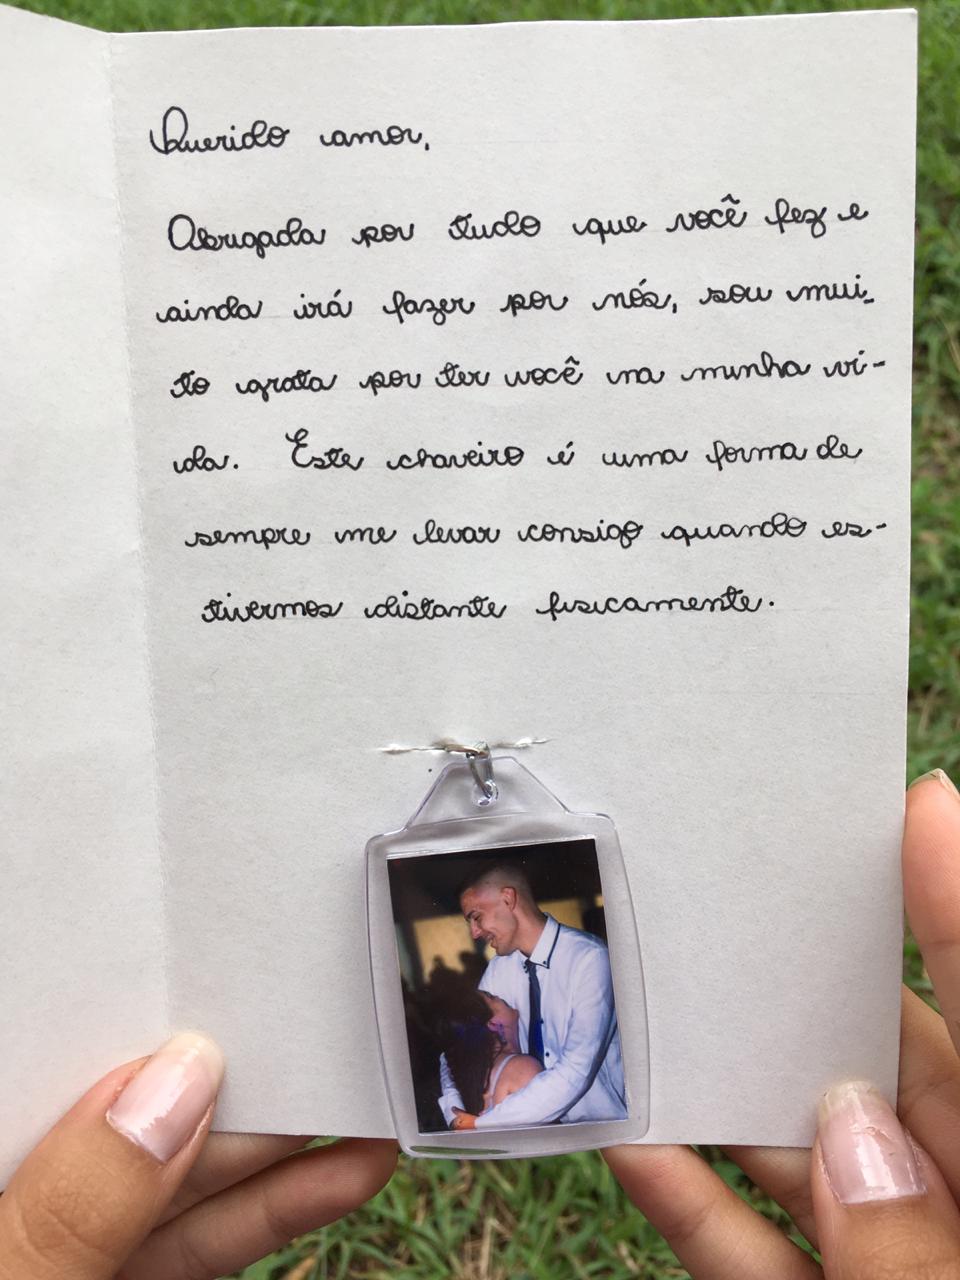 Querido amor,
Obrigada por tudo que você fez e
ainda irá fazer por nós, sou mui-
to grata por ter você na minha vi-
da. Este chaveiro é uma forma de
sempre me levar consigo quando es-
tivermos distante fisicamente.